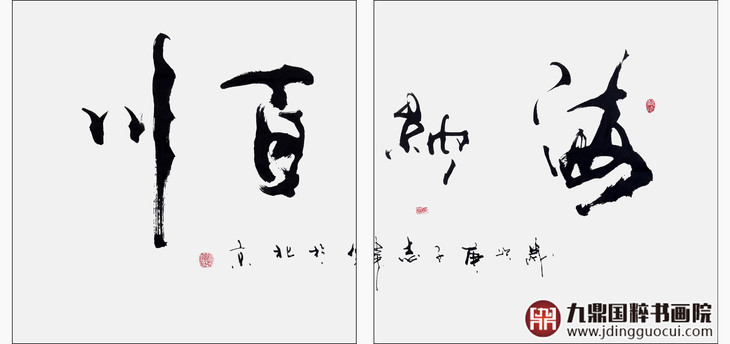 海納百川
庚子志於北京
九鼎国粹书画院
www.jdingguocui.com